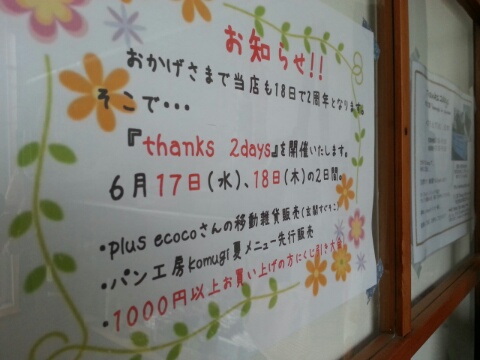 お知らせ!!
おかげさまで当店も18日で2周年となります。
そこで・・・
『thanks 2days』を開催いたします。
6月17日(水)、18日(木)の2日間。
・plus ecocoさんの移動雑貨販売(玄関でそこ)
・パン工房komugi夏メニュー先行販売
・1000円以上お買い上げの方にくじ引き大